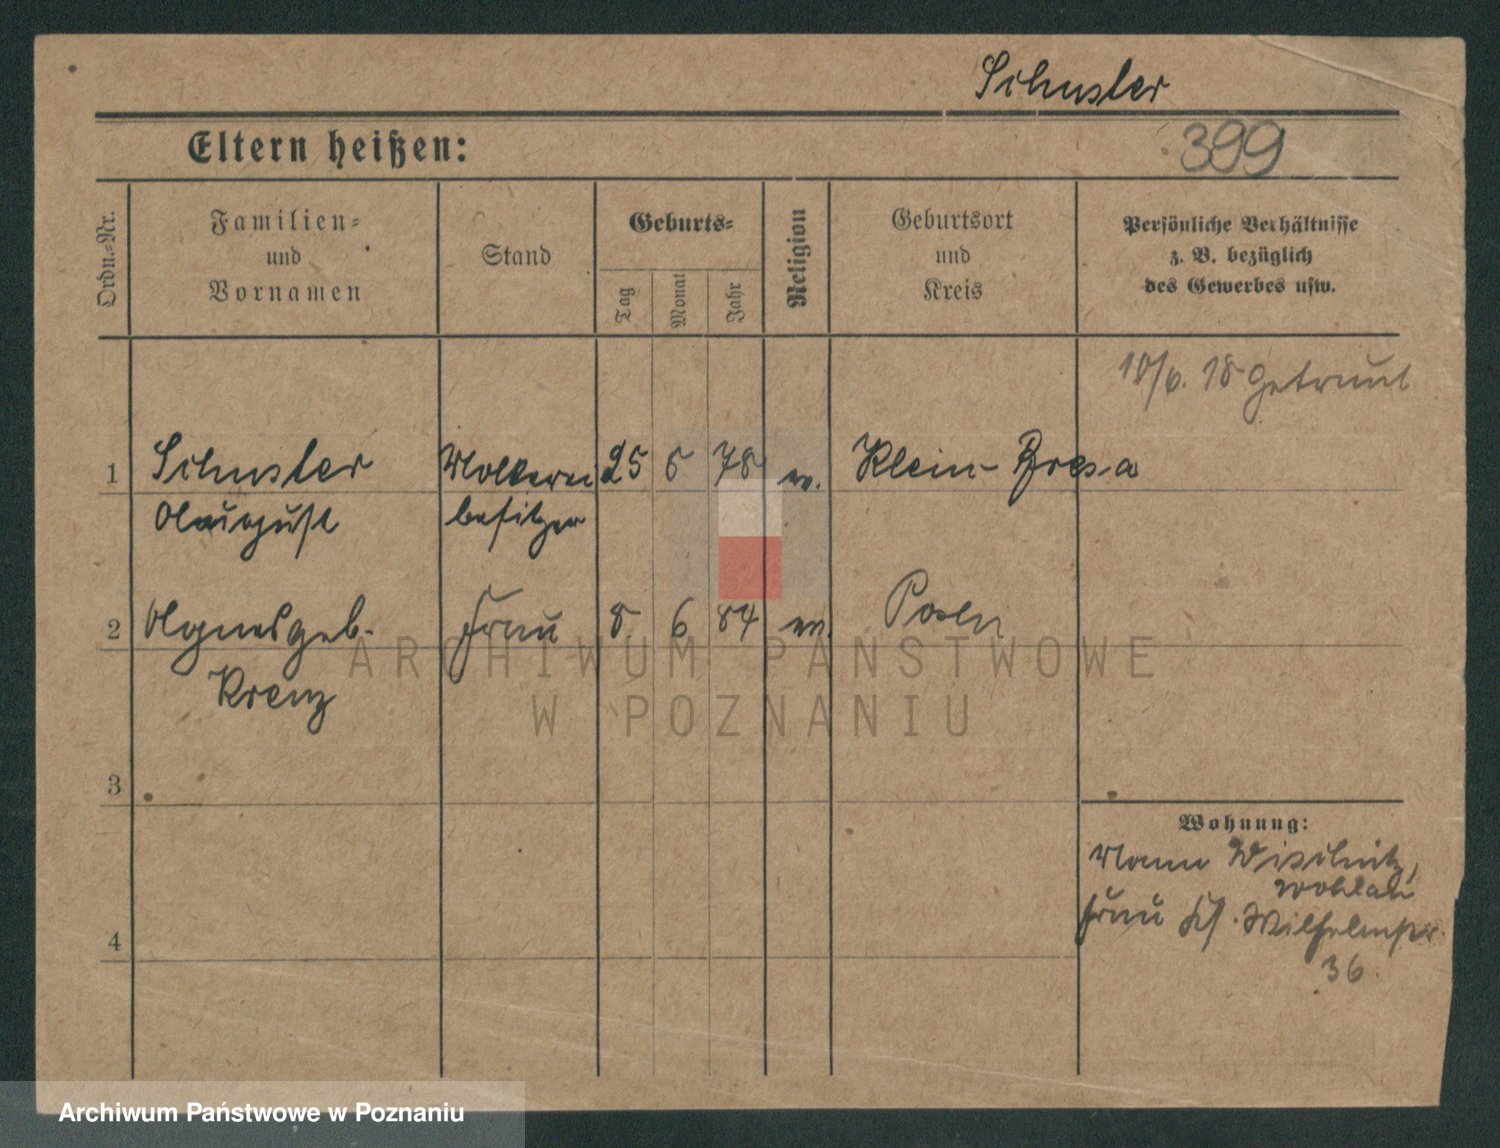 Schuster
Eltern heißen:
399
Ordn.-Nr.
Familien-
und
Vornamen
Stand
Geburts-
Tag
Monat
Jahr
Religion
Geburtsort
und
Kreis
Persönliche Verhältnisse
z. B. bezüglich
des Gewerbes usw.
10/6. 18 getraut
1 Schuster Molkerei 25 5 78 ev. Klein Bresa
August besitzer
2 Agnes geb. Frau 8 6 84 ev. Posen
Krenz
ARCHIWUM PAŃSTWOWE
W POZNANIU
3
Wohnung:
Mann Wischnitz,
Wohlau
Frau Ks. Wilhelmstr.
36.
4
Archiwum Państwowe w Poznaniu